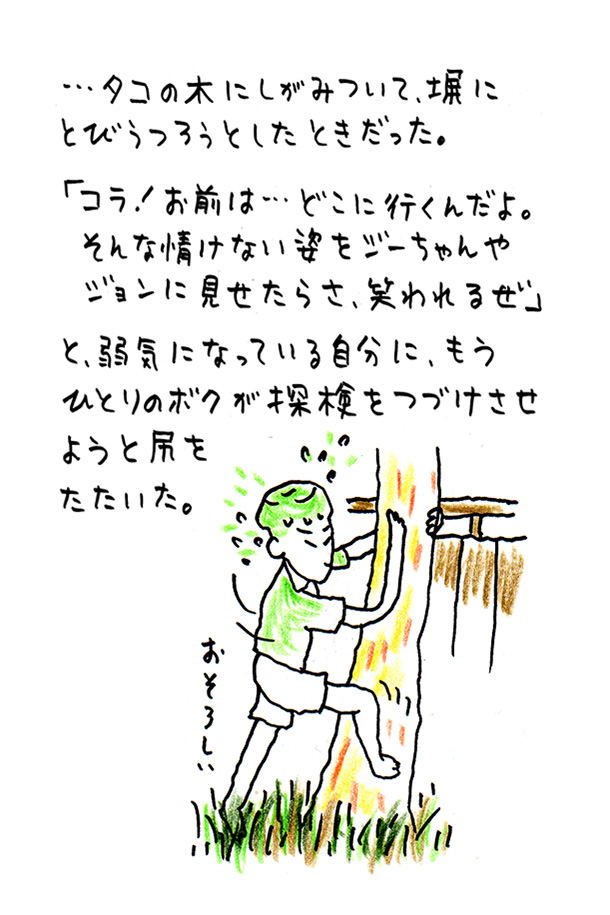 …タコの木にしがみついて、塀に
とびうつろうとしたときだった。
「コラ！お前は…どこに行くんだよ。
そんな情けない姿をジーちゃんや
ジョンに見せたらさ、笑われるぜ」
と、弱気になっている自分に、もう
ひとりのボクが探検をつづけさせ
ようと尻を
たたいた。
おそろしい